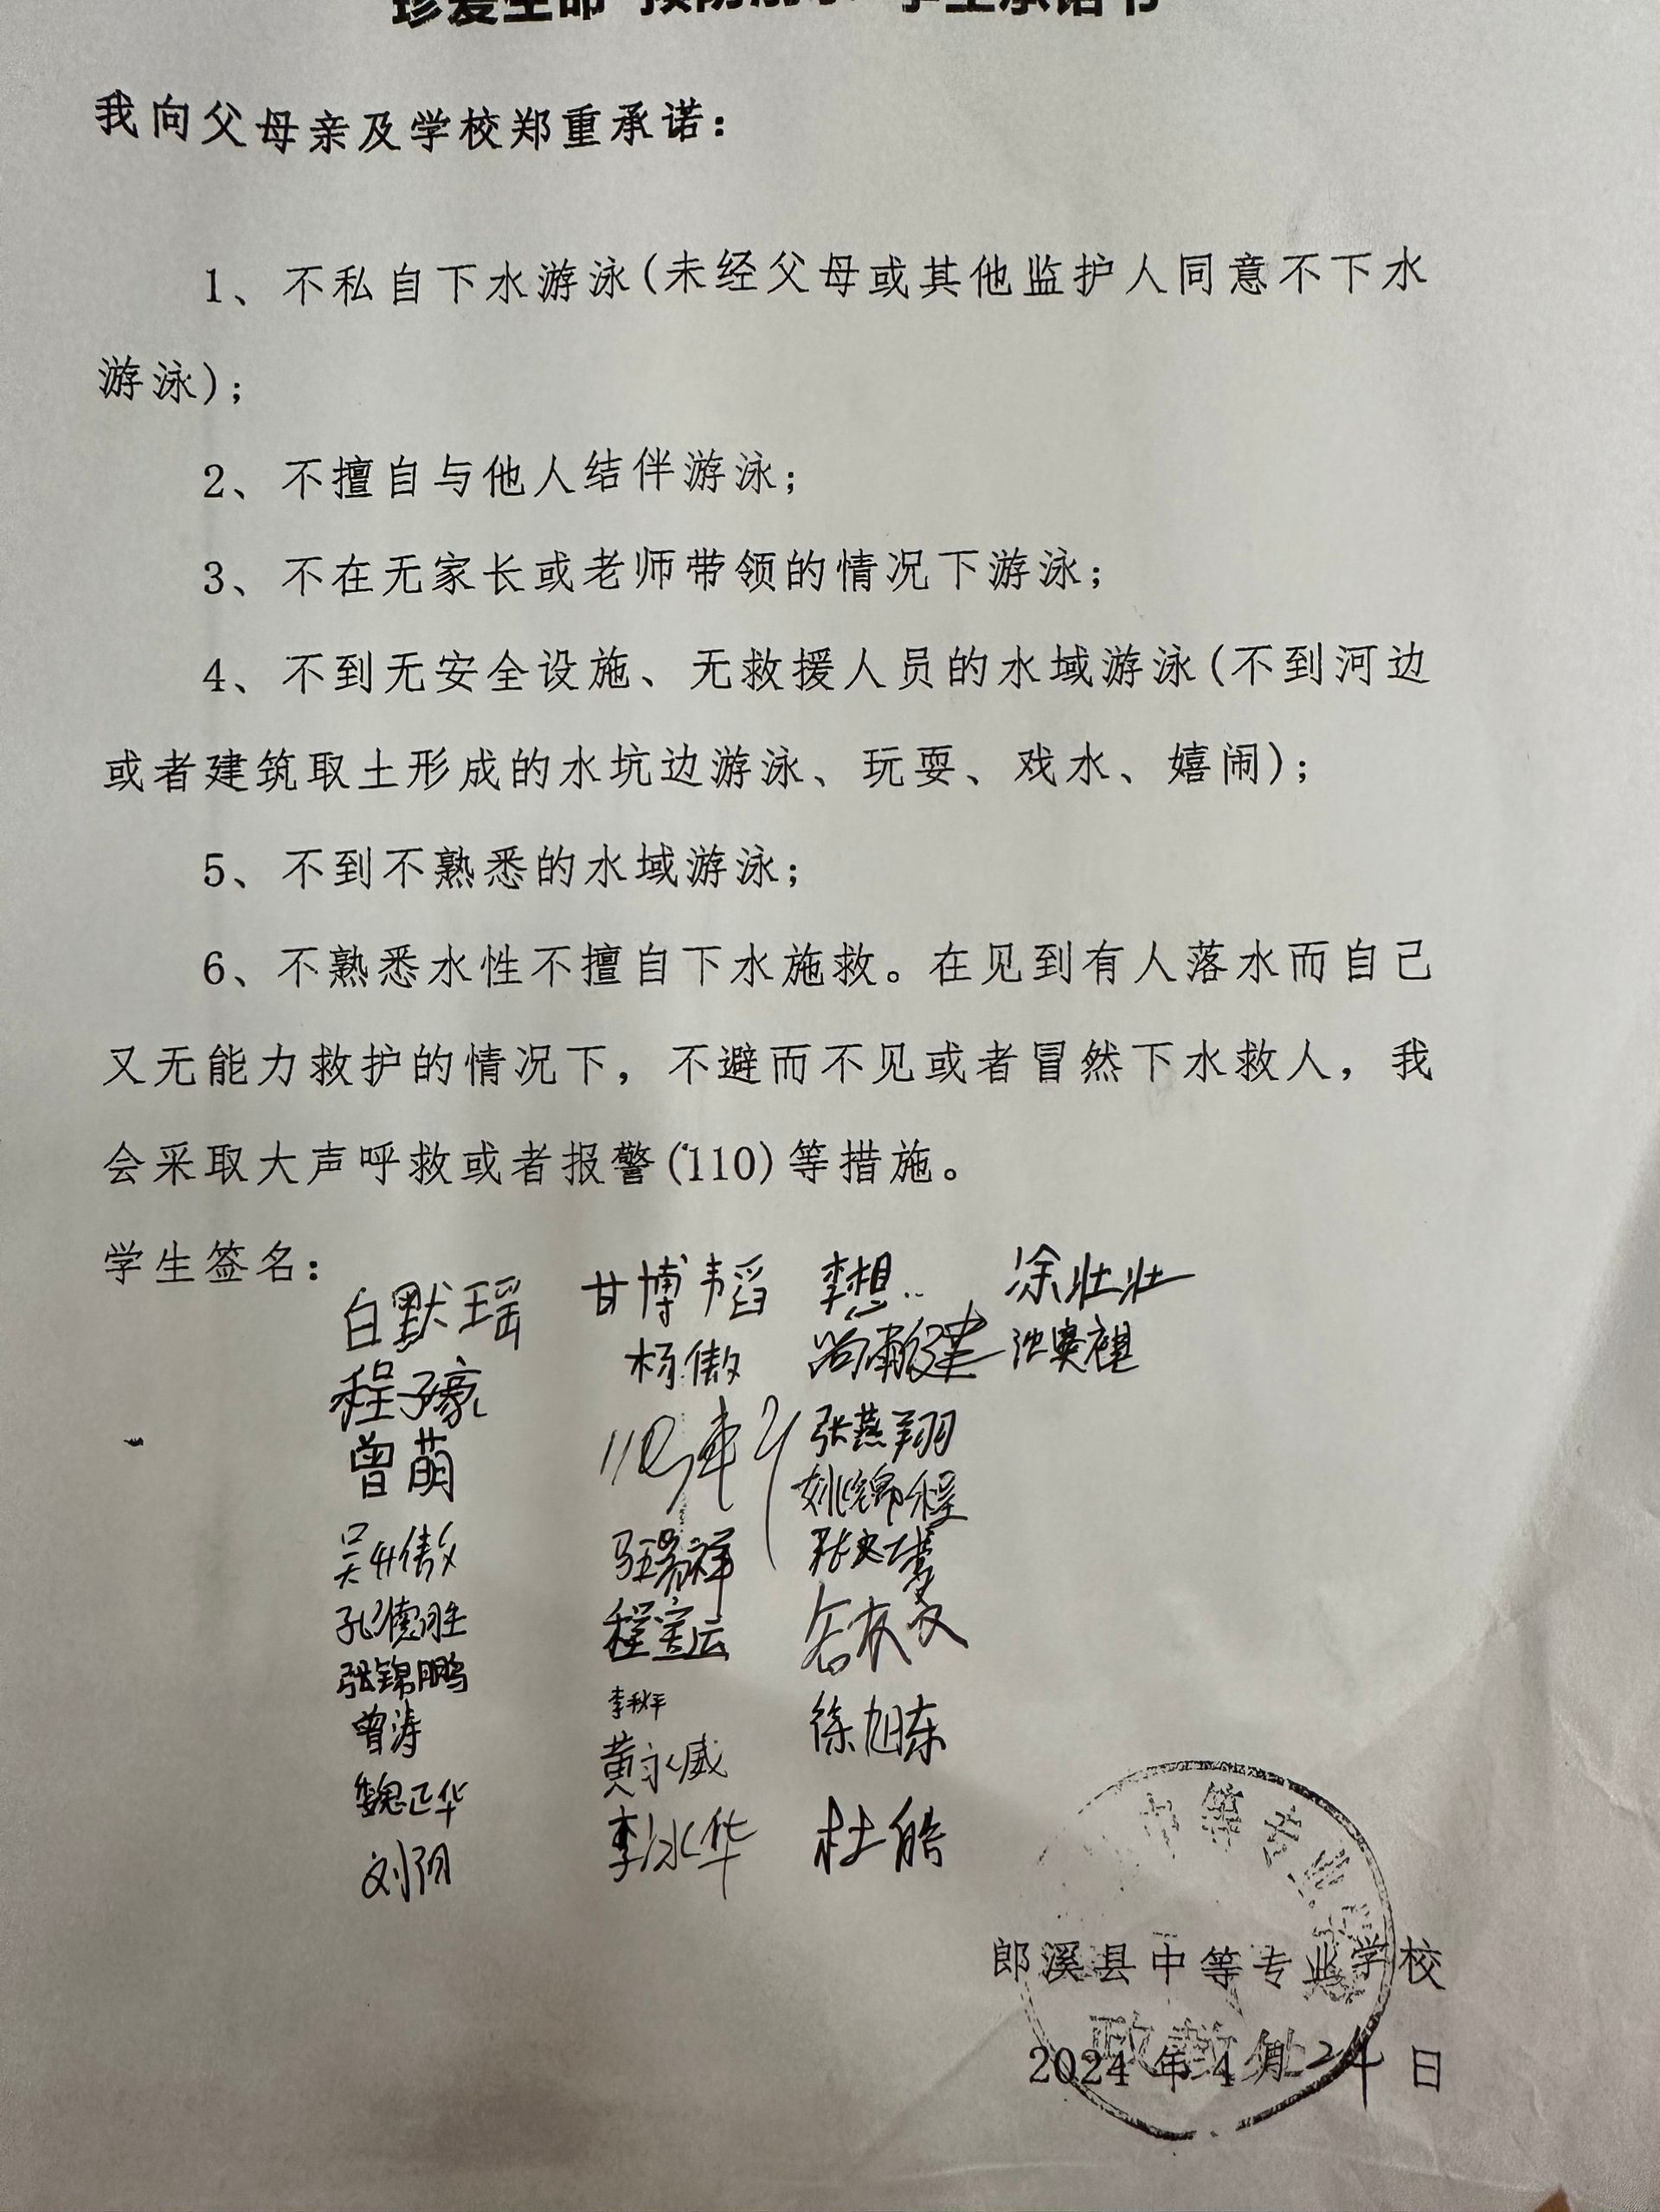 珍爱生命 预防溺水 学生承诺书
我向父母亲及学校郑重承诺：
1、不私自下水游泳(未经父母或其他监护人同意不下水
游泳)；
2、不擅自与他人结伴游泳；
3、不在无家长或老师带领的情况下游泳；
4、不到无安全设施、无救援人员的水域游泳(不到河边
或者建筑取土形成的水坑边游泳、玩耍、戏水、嬉闹)；
5、不到不熟悉的水域游泳；
6、不熟悉水性不擅自下水施救。在见到有人落水而自己
又无能力救护的情况下，不避而不见或者冒然下水救人，我
会采取大声呼救或者报警(110)等措施。
学生签名：
白默瑶 甘博韬 李想 涂壮壮
程子豪 杨傲
曾萌 张燕翔
姚锦程
孔德胜 程宝云
张锦鹏 李秋平
曾涛 黄永威 徐旭东
魏正华 李冰华 杜皓
刘阳
中等专业
郎溪县中等专业学校
政教处
2024 年 4 月 24 日